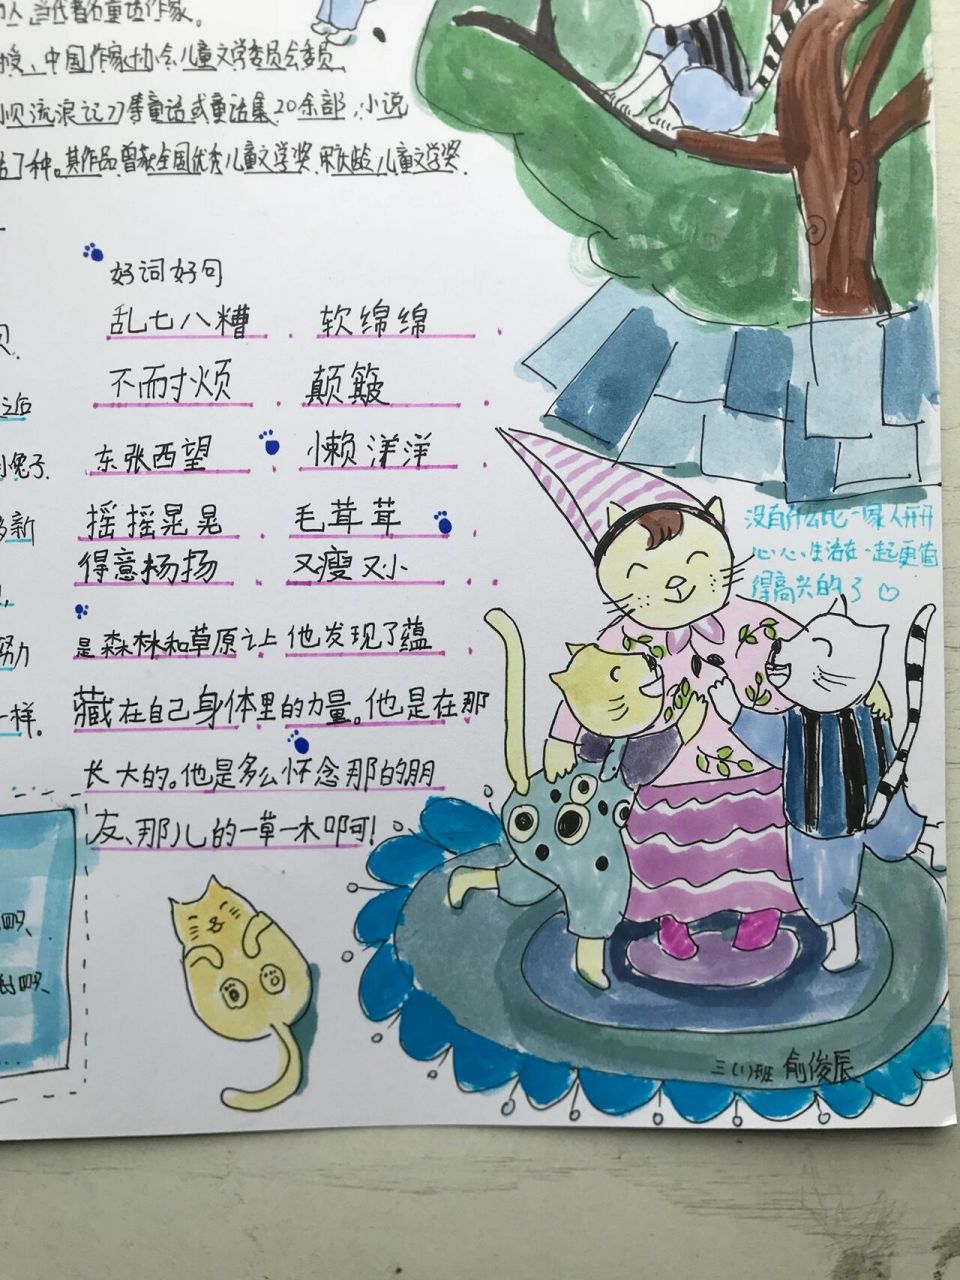 人,当代著名童话作家。
授、中国作家协会儿童文学委员会委员
流浪记》等童话或童话集20余部,小说
了种。其作品曾获全国优秀儿童文学奖、宋庆龄儿童文学奖.
好词好句
乱七八糟 . 软绵绵 .
不耐烦 . 颠簸 .
东张西望 . 懒洋洋 .
摇摇晃晃 . 毛茸茸 .
得意扬扬 . 又瘦又小 . .
是森林和草原让他发现了蕴
藏在自己身体里的力量。他是在那
长大的。他是多么怀念那的朋
友、那儿的一草一木啊!
没有什么比一家人开开
心心、生活在一起更值
得高兴的了♡
之后
兔子.
新
努力
一样.
三(1)班 俞俊辰